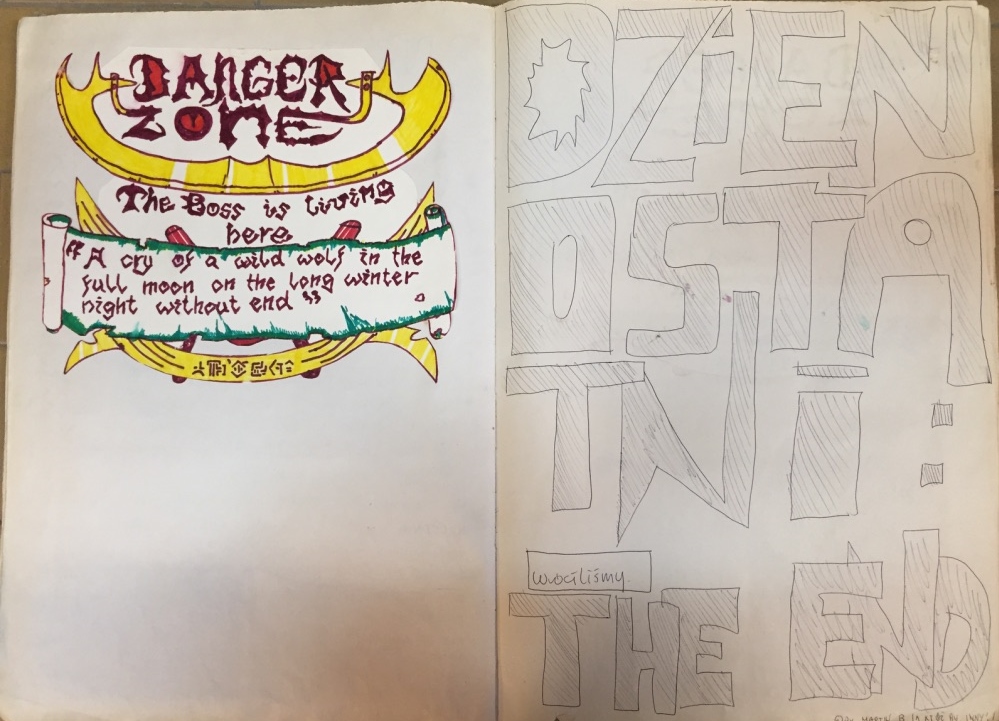 DANGER
ZONE
The Boss is living
here
"A cry of a wild wolf in the
full moon on the long winter
night without end"
DZIEŃ
OSTA
TNI :
wróciliśmy.
THE END